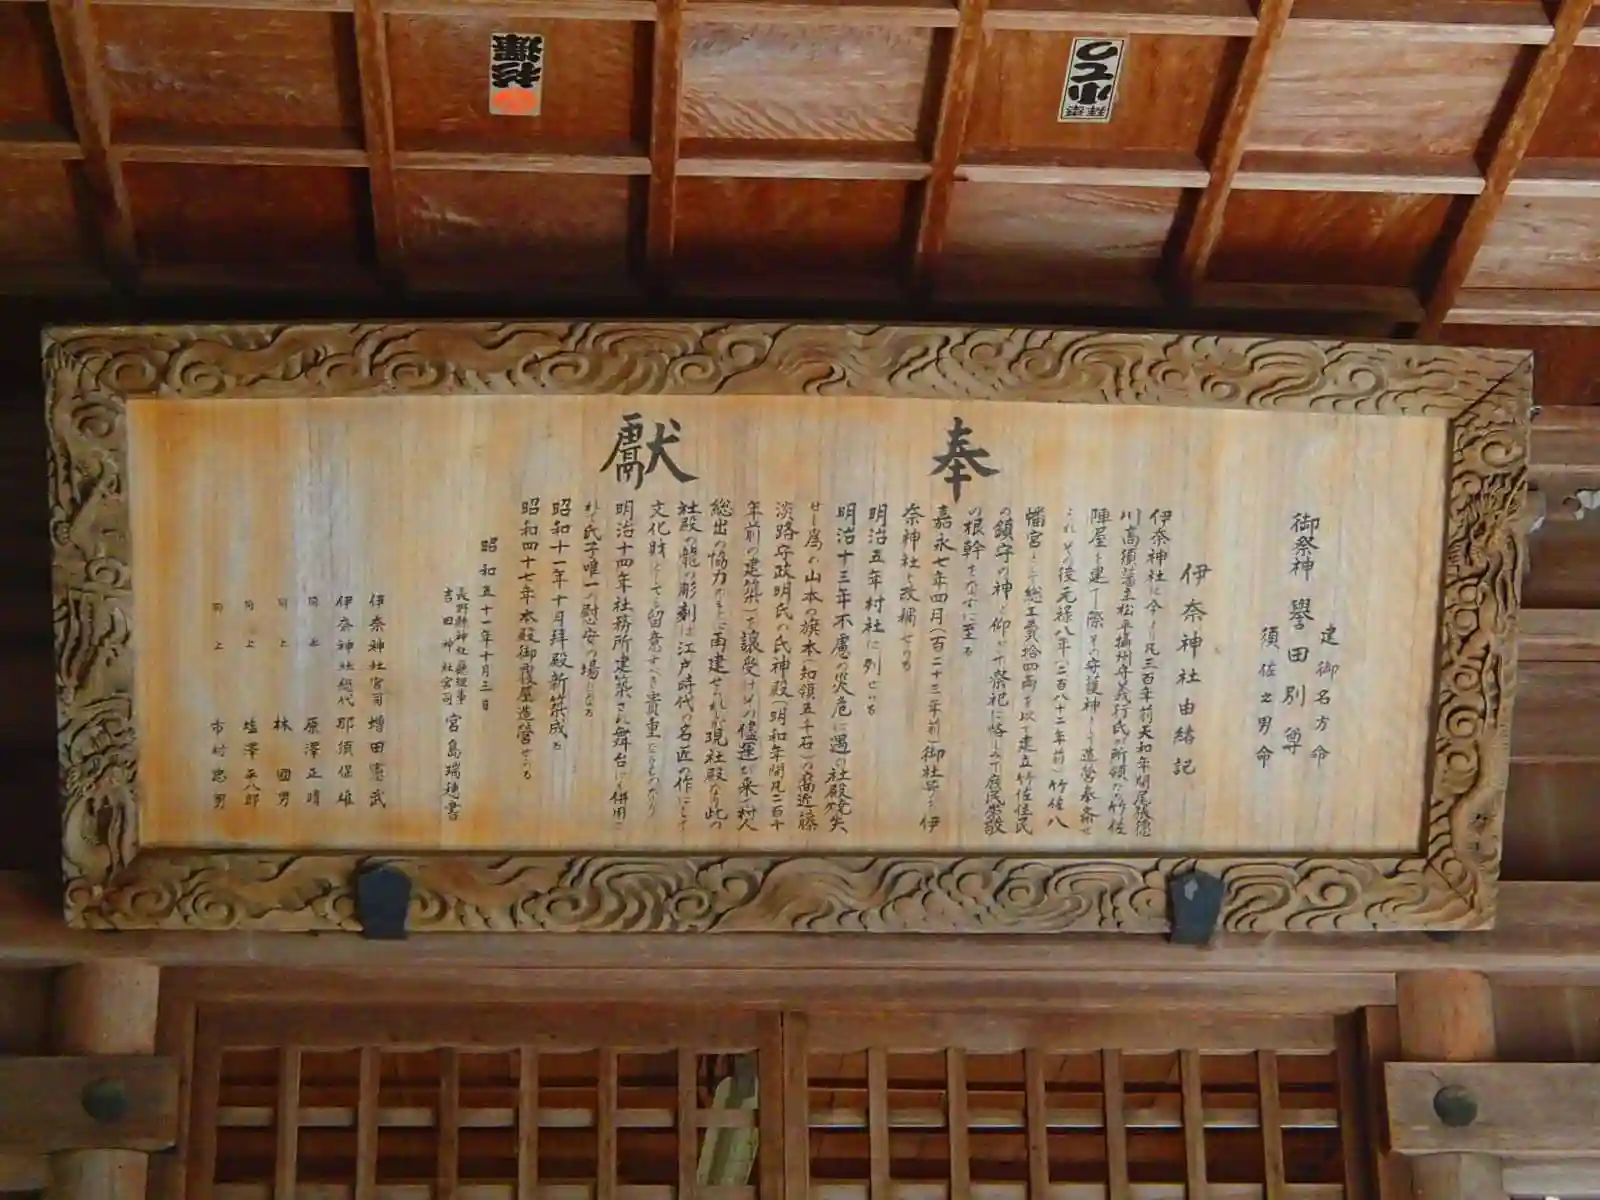 奉献
建御名方命
御祭神 譽田別尊
須佐之男命
伊奈神社由緒記
伊奈神社は今より凡三百年前天和年間尾張徳
川高須藩主松平攝州守義行氏が所領たる竹佐
陣屋を建し際その守護神として造営奉斎せ
これその後元禄八年(二百八十二年前)竹佐八
幡宮として総工費拾四両を以て建立竹佐住民
の鎮守の神と仰がせ祭祀に怠しみて庶民崇敬
の根幹をなすに至る
嘉永七年四月(百二十三年前)御社号を伊
奈神社と改稱せらる
明治五年村社に列せらる
明治十三年不慮の災危に遇い社殿焼失
せし爲め山本の旗本(知領五千石)の斎近藤
淡路守政明氏の氏神殿(明和年間凡二百十
年前の建築)を譲受けその儘運び来て村人
総出の協力のもとに再建せられた現社殿なり此の
社殿の龍の彫刻は江戸時代の名匠の作にして
文化財としても留意すべき貴重なるものたり
明治十四年社務所建築され舞台にも併用
れて氏子唯一の慰安の場となる
昭和十一年十月拝殿新築成る
昭和四十七年本殿御覆屋造營せらる
昭和五十一年十月三日
長野縣神社廳理事
吉田神社宮司 宮島瑞穂書
伊奈神社宮司 増田憲武
伊奈神社総代 那須保雄
同上 原澤正晴
同上 林國男
同上 塩澤平八郎
同上 市村忠男